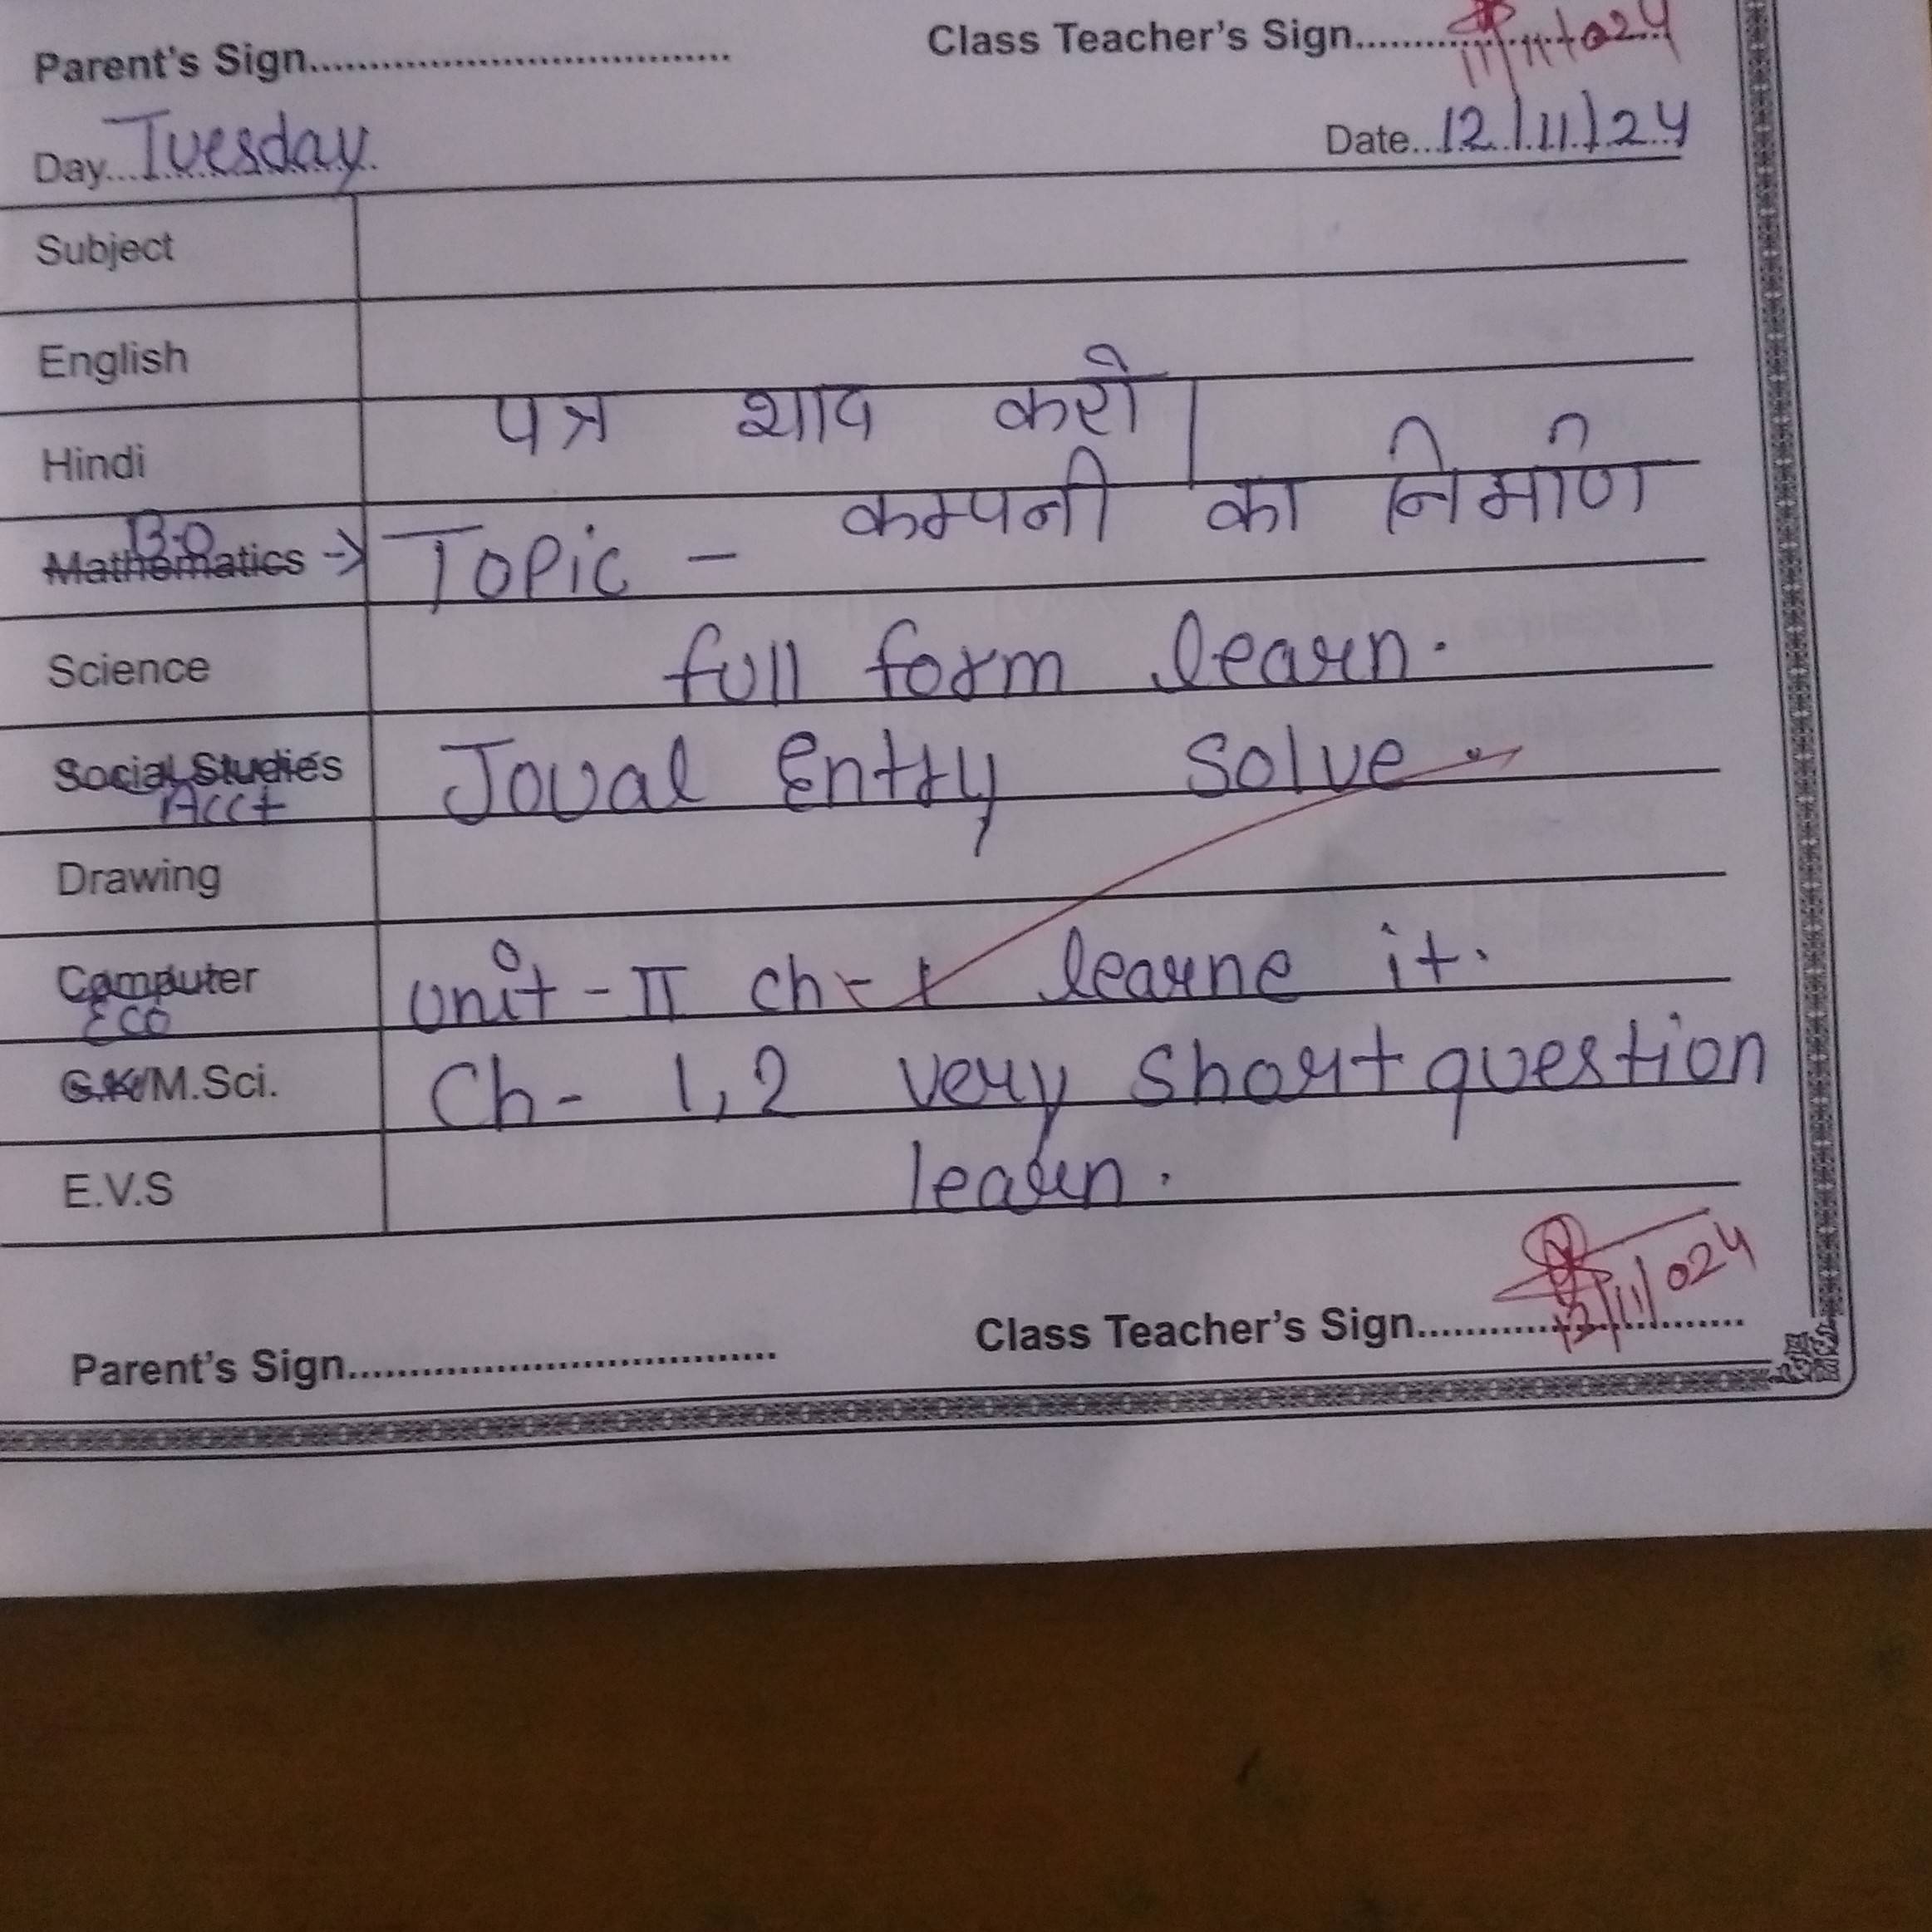 Parent's Sign.................................. Class Teacher's Sign.................. 11/11/024
Day... Tuesday Date... 12/11/24
Subject
English
Hindi पत्र याद करो।
Mathematics B.O → Topic - कम्पनी का निर्माण
Science full form learn.
Social Studies Joual Entry solve
Acct
Drawing
Computer unit - II ch - 1 learne it.
Eco
G.K/M.Sci. Ch - 1, 2 very short question
E.V.S learn.
Parent's Sign................................... Class Teacher's Sign........................... 12/11/024